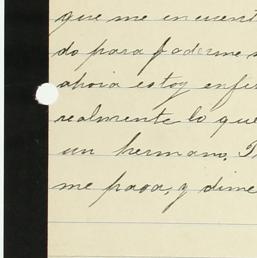 que me encuent
do para poderme
ahora estoy enfer
realmente lo que
un hermano.
me pasa, y dime